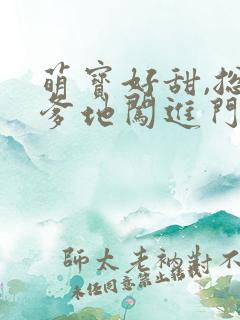 萌寶好甜,總
爹地闖進門
師太老衲對不
未任同意禁止轉載